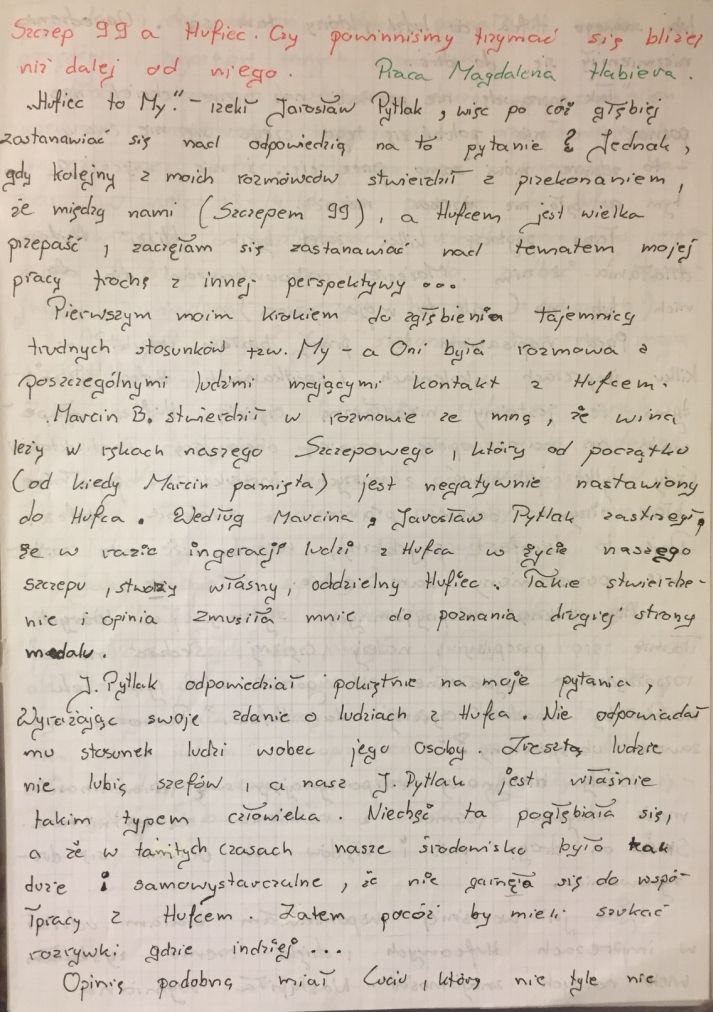 Szczep 99 a Hufiec. Czy powinniśmy trzymać się bliżej
niż dalej od niego. Praca Magdalena
„Hufiec to My." - rzekł Jarosław Pytlak, więc po cóż głębiej
zastanawiać się nad odpowiedzią na to pytanie ? Jednak,
gdy kolejny z moich rozmówców stwierdził z przekonaniem,
że między nami (Szczepem 99), a Hufcem jest wielka
przepaść, zaczęłam się zastanawiać nad tematem mojej
pracy trochę z innej perspektywy ...
Pierwszym moim krokiem do zgłębienia tajemnicy
trudnych stosunków tzw. My - a Oni była rozmowa z
poszczególnymi ludźmi mającymi kontakt z Hufcem.
Marcin B. stwierdził w rozmowie ze mną, że wina
leży w rękach naszego Szczepowego, który od początku
(od kiedy Marcin pamięta) jest negatywnie nastawiony
do Hufca. Według Marcina, Jarosław Pytlak zastrzegł,
że w razie ingeracji ludzi z Hufca w życie naszego
szczepu, stworzy własny, oddzielny Hufiec. Takie stwierdze-
nie i opinia zmusiła mnie do poznania drugiej strony
medalu.
J. Pytlak odpowiedział pokrętnie na moje pytania,
Wyrażając swoje zdanie o ludziach z Hufca. Nie odpowiadał
mu stosunek ludzi wobec jego osoby. Zresztą ludzie
nie lubią szefów, a nasz J. Pytlak jest właśnie
takim typem człowieka. Niechęć ta pogłębiała się,
a że w tamtych czasach nasze środowisko było tak
duże i samowystarczalne, że nie garnęła się do wspó-
łpracy z Hufcem. Zatem pocóż by mieli szukać
rozrywki gdzie indziej ...
Opinię podobną miał Luciu, który nie tyle nie